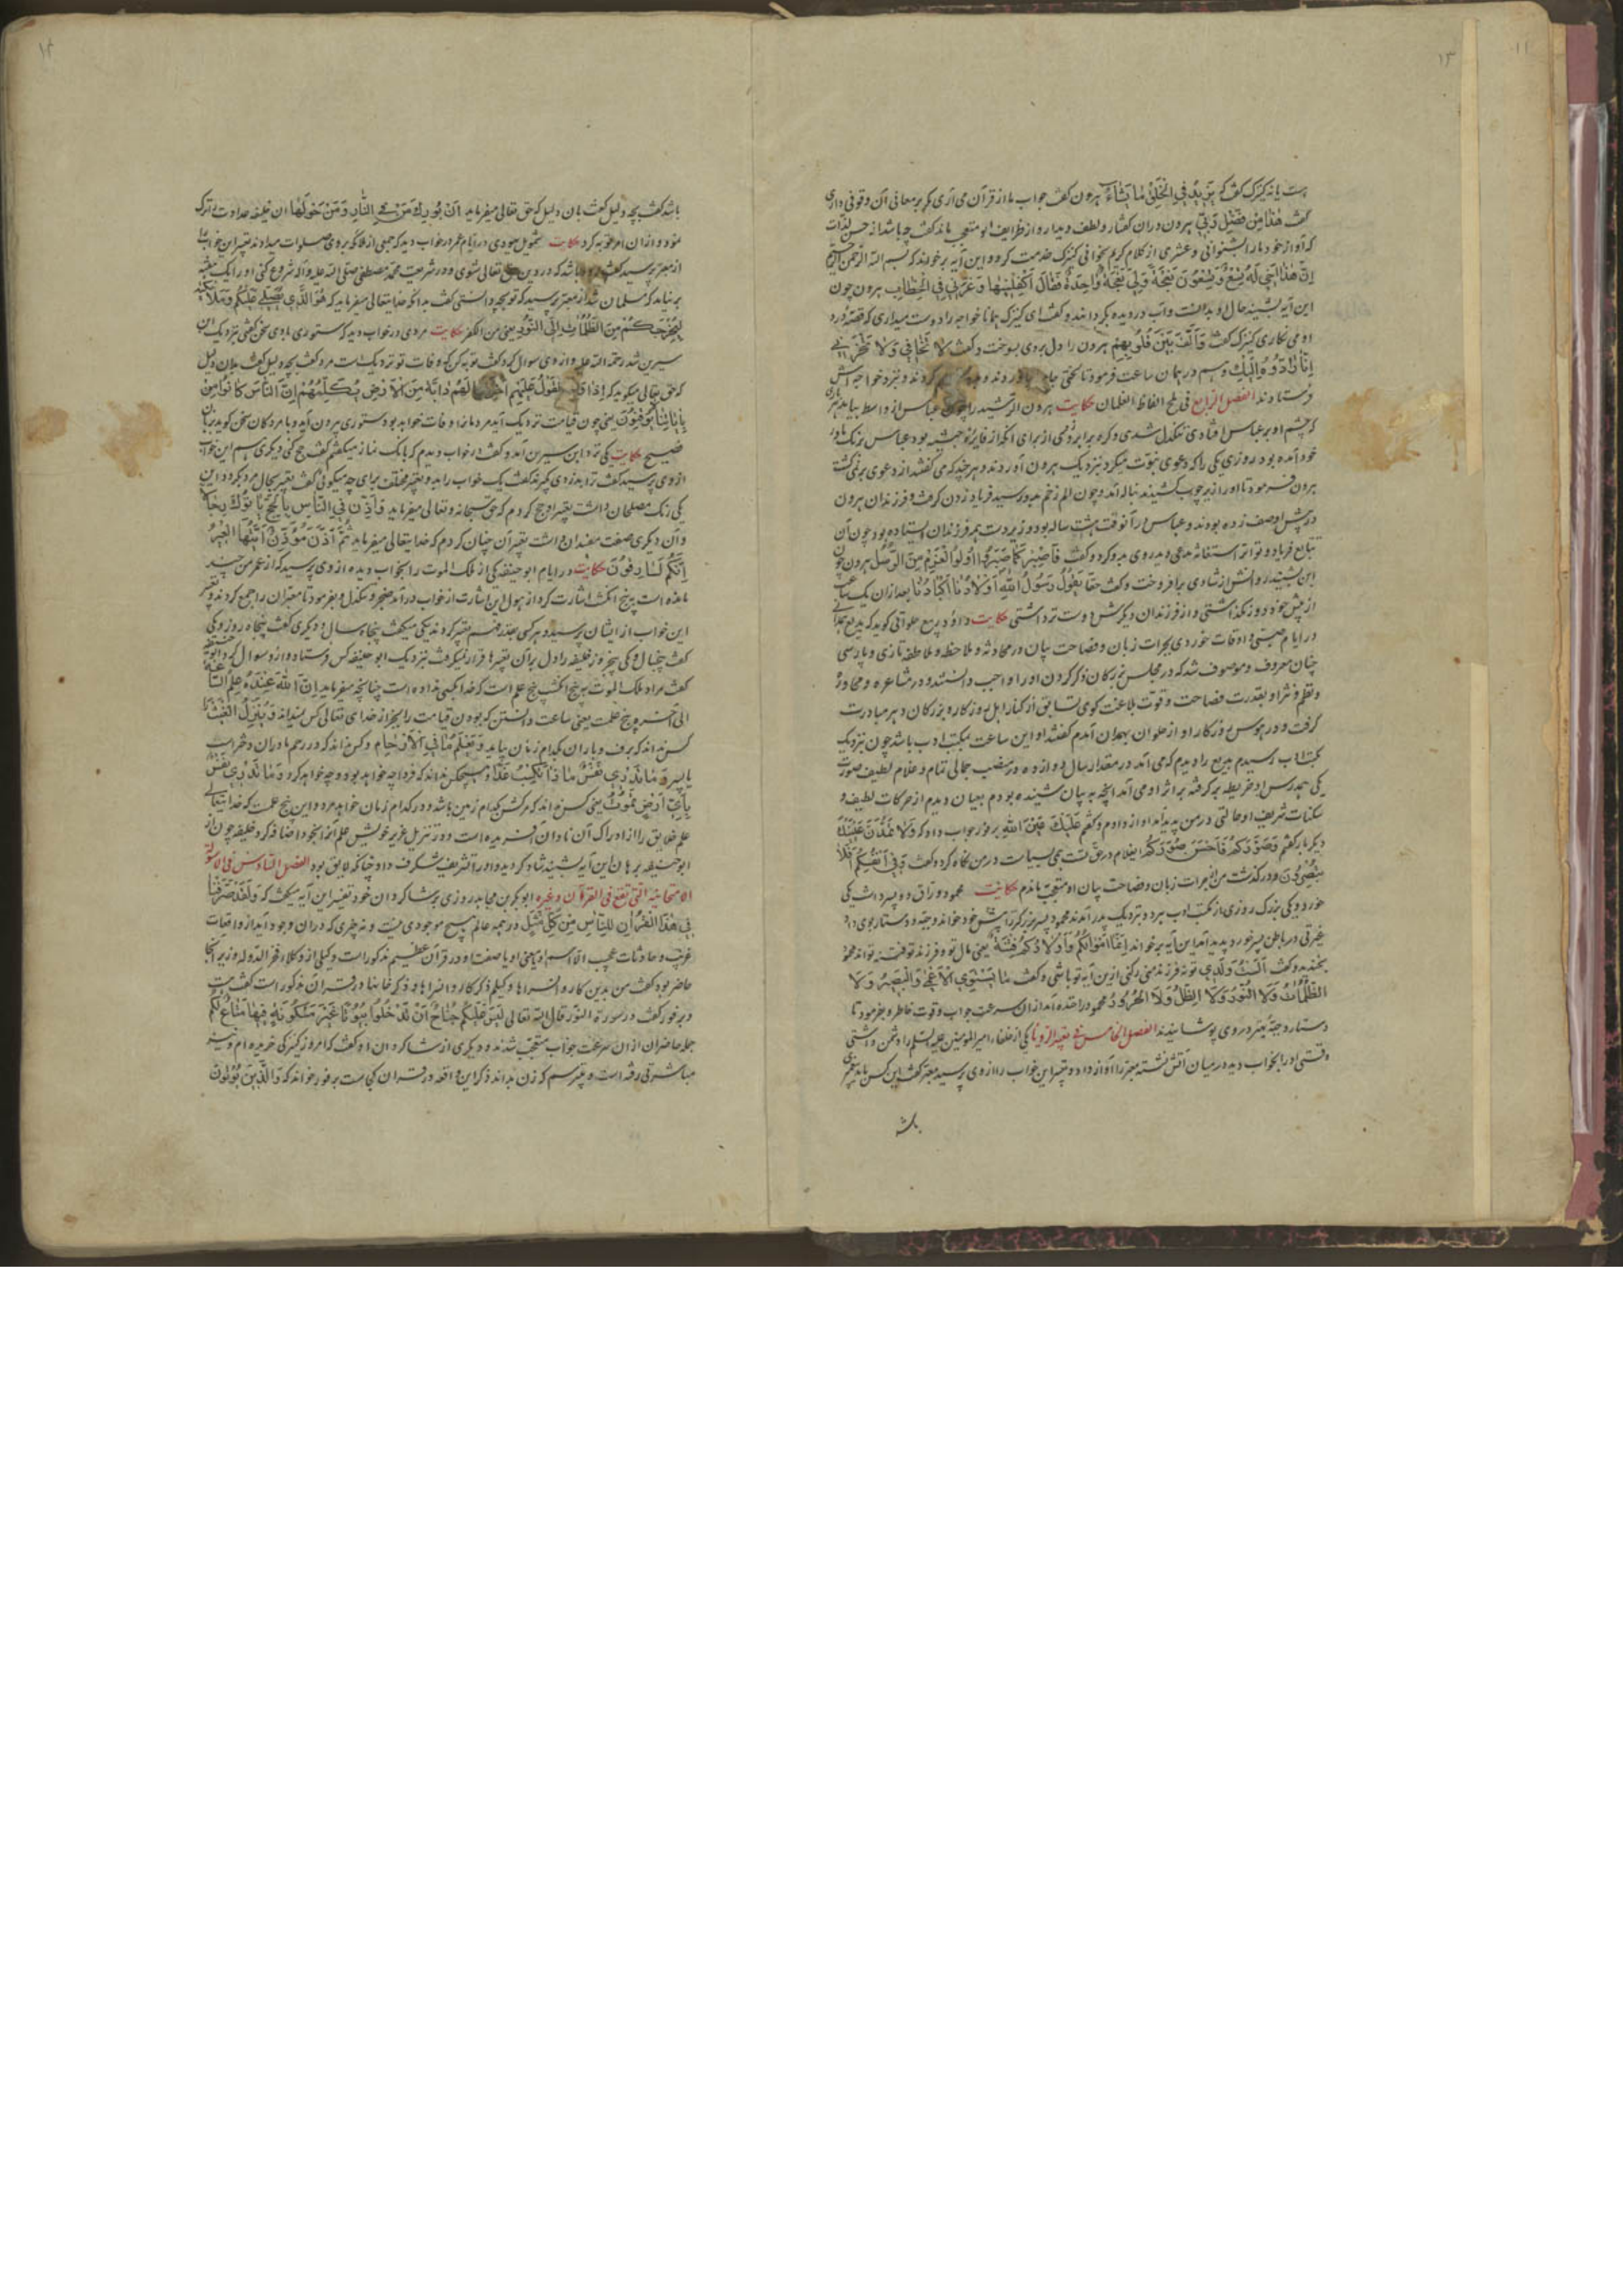 ۱۱
۱۳
کنیزک گفت که یَزِیدُ فِی الْخَلْقِ مَا یَشَاءُ هرون گفت جواب ما از قرآن می آری مکر بر معانی آن وقوفی داری
گفت هٰذَا مِنْ فَضْلِ رَبِّی هرون در ان گفتار و لطف دیدار و از ظرایف او متعجب ماند گفت چه باشد
که آواز خود ما را بشنوانی و عشری از کلام کریم بخوانی کنیزک خدمت کرد و این آیه بر خواند که بسم الله الرحمن الرحیم
اِنَّ هٰذَا اَخِی لَهُ تِسْعٌ وَتِسْعُونَ نَعْجَةً وَلِیَ نَعْجَةٌ وَاحِدَةٌ فَقَالَ اَکْفِلْنِیهَا وَعَزَّنِی فِی الْخِطَابِ هرون چون
این آیه بشنید حال او بدانست و آب در دیده بکردانید و گفت ای کنیزک همانا خواجه را دوست میداری که قصه درد
او می نگاری کنیزک گفت وَاَلَّفَ بَیْنَ قُلُوبِهِمْ هرون را دل بر وی بسوخت و گفت لَا تَخَافِی وَلَا تَحْزَنِی
اِنَّا رَادُّوهُ اِلَیْکِ و هم در همان ساعت فرمود تا و نزد خواجه اش
فرستادند الفصل الرابع فی ملح الفاظ الغلمان حکایت هرون الرشید را چون عباس از واسط بیامد
که چشم او بر عباس افتادی تنکدل شدی از برای انکه از حبشیه بود عباس
آمده بود روزی یکی را که دعوی نبوت میکرد بنزدیک هرون آوردند و هر چند که می گفتند از دعوی بر نمی گشت
هرون فرمود تا او را زیر چوب کشیدند ناله آمد و چون الم زخم بدو رسید فریاد زدن کرفت و فرزندان هرون
در پیش او صف زده بودند و عباس را آنوقت هشت ساله بود و زیر دست همه فرزندان استاده بود چون آن
فریاد و تواتر استغاثه مدعی دید روی بدو کرد و گفت فَاصْبِرْ کَمَا صَبَرَ اُولُوا الْعَزْمِ مِنَ الرُّسُلِ هرون چون
این بشنید از شادی بر افروخت و گفت حقا یَقُولُ رَسُولُ اللهِ اَوْلَادُنَا اَکْبَادُنَا بعد از ان یک ساعت
از پیش خود دور نکذاشتی و از فرزندان دیکرش دوست تر داشتی حکایت داود بدیع حلوانی کوید که بدیع
در ایام صبی و اوقات خوردی بجرات زبان و فصاحت بیان در محادثه و ملاحظه و ملاطفه تازی و پارسی
چنان معروف و موصوف شد که در مجلس بزرکان ذکر کردن او را واجب دانستند و در مشاعره و محاوره
و نظم و نثر او بقدرت فصاحت و قوت بلاغت کوی تسابق از کنار اهل روزکار و بزرکان دهر مبادرت
کرفت و در هوس روزکار او از حلوان بهمدان آمدم گفتند او این ساعت بمکتب ادب باشد چون نزدیک
رسیدم بدیع را دیدم که می آمد در مقدار سال دوازده در منصب جمالی تمام و غلام لطیف صورت
یکی همدرس او خریطه بر کرفته بر اثر او می آمد انچه به بیان شنیده بودم بعیان دیدم از حرکات لطیف و
سکنات شریف او حالتی در من پدید آمد آواز دادم و گفتم عَلَیْکَ عَیْنُ اللهِ بر فور جواب داد که وَلَا تَمُدَّنَّ عَیْنَیْکَ
دیکر بار گفتم وَصَوَّرَکُمْ فَاَحْسَنَ صُوَرَکُمْ در من نگاه کرد و گفت وَفِی اَنْفُسِکُمْ اَفَلَا
تُبْصِرُونَ و در کذشت من از جرات زبان و فصاحت بیان او متعجب بماندم حکایت محمود وراق دو پسر داشت یکی
خورد و یکی بزرک روزی از مکتب ادب نزدیک پدر آمدند محمود پسر بزرکتر را پیش خود خواند و جبه و دستار بوی داد
غیرتی در باطن پسر خورد پدید آمد این آیه بر خواند اِنَّمَا اَمْوَالُکُمْ وَاَوْلَادُکُمْ فِتْنَةٌ یعنی مال تو و فرزند تو فتنه تواند محمود
بخندید و گفت اَلَسْتَ وَلَدِی تو نه فرزند منی رکنی از این آیه تو باشی و گفت مَا یَسْتَوِی الْاَعْمٰی وَالْبَصِیرُ وَلَا
الظُّلُمَاتُ وَلَا النُّورُ وَلَا الظِّلُّ وَلَا الْحَرُورُ محمود را خنده آمد از ان سرعت جواب و قوت خاطر و بفرمود تا
دستار و جبه نیز در وی پوشانیدند الفصل الخامس فی تعبیر الرؤیا یکی از خلفا امیر المؤمنین علیه السلم را دشمن داشتی
وقتی او را بخواب دید در میان آتش نشسته معبر را آواز داد و تعبیر این خواب را از وی پرسید معبر گفت این کس باید پیغمبری
باشد
۱۴
باشد گفت بچه دلیل گفت بان دلیل که حق تعالی میفرماید اَنْ بُورِکَ مَنْ فِی النَّارِ وَمَنْ حَوْلَهَا ان خلیفه عداوت ترک
نمود و از ان امر توبه کرد حکایت شمویل یهودی در ایام عمر در خواب دید که جمعی از ملائکه بر وی صلوات میدادند تعبیر این خواب
از معبر پرسید گفت باشد که در دین حق تعالی شوی و در شریعت محمد مصطفی صلی الله علیه و آله شروع کنی او را یک هفته
بر نیامد که مسلمان شد از معبر پرسید که تو بچه دانستی گفت بدانکه خدا یتعالی میفرماید که هُوَ الَّذِی یُصَلِّی عَلَیْکُمْ وَمَلَائِکَتُهُ
لِیُخْرِجَکُمْ مِنَ الظُّلُمَاتِ اِلَی النُّورِ یعنی من الکفر حکایت مردی در خواب دید که ستوری با وی سخن گفتی نزدیک ابن
سیرین شد رحمة الله علیه و از وی سوال کرد گفت توبه کن که وفات تو نزدیک است مرد گفت بچه دلیل گفت بدان دلیل
که حق تعالی میکوید که اِذَا وَقَعَ الْقَوْلُ عَلَیْهِمْ اَخْرَجْنَا لَهُمْ دَابَّةً مِنَ الْاَرْضِ تُکَلِّمُهُمْ اِنَّ النَّاسَ کَانُوا
بِآیَاتِنَا لَا یُوقِنُونَ یعنی چون قیامت نزدیک آید مردمانرا وفات خواهد بود ستوری بیرون آید و با مردکان سخن کوید بزبان
فصیح حکایت یکی نزد ابن سیرین آمد و گفت در خواب دیدم که بانک نماز میگفتم گفت حج کنی دیکری هم این خواب
از وی پرسید گفت ترا بدزدی گیرند گفتند یک خواب را بدو تعبیر مختلف برای چه میکوئی گفت تعبیر بحال مرد بکردد این
یکی رنک مصلحان داشت تعبیر او حج کردم که حق سبحانه و تعالی میفرماید وَاَذِّنْ فِی النَّاسِ بِالْحَجِّ یَأْتُوکَ رِجَالًا
و آن دیکری صفت مفسدان داشت تعبیر آن چنان کردم که خدا یتعالی میفرماید ثُمَّ اَذَّنَ مُؤَذِّنٌ اَیَّتُهَا الْعِیرُ
اِنَّکُمْ لَسَارِقُونَ حکایت در ایام ابو حنیفه یکی از ملک الموت را بخواب دید از وی پرسید که از عمر من چند
مانده است به پنج انکشت اشارت کرد از هول این اشارت از خواب در آمد متحیر و تنکدل و بفرمود تا معبران را جمع کردند و تعبیر
این خواب از ایشان پرسید و هر کسی بقدر فهم تعبیر کردند یکی میگفت پنجاه سال و دیکری گفت پنجاه روز و یکی
گفت پنج سال و یکی پنج روز خلیفه را دل بر آن تعبیرها قرار نمیکرفت نزدیک ابو حنیفه کس فرستاد و از او سوال کرد ابو حنیفه
گفت مراد ملک الموت به پنج انکشت پنج علم است که خدا بکسی نداده است چنانچه میفرماید اِنَّ اللهَ عِنْدَهُ عِلْمُ السَّاعَةِ
الی آخره و پنج علمست یعنی ساعت دانستن که بودن قیامت را بجز از خدای تعالی کس نمیداند وَیُنَزِّلُ الْغَیْثَ
کس نداند که برف و باران بکدام زمان بیاید وَیَعْلَمُ مَا فِی الْاَرْحَامِ و کس نداند که در رحم مادران دختر است
یا پسر وَمَا تَدْرِی نَفْسٌ مَاذَا تَکْسِبُ غَدًا و هیچکس نداند که فردا چه خواهد بود و چه خواهد کرد وَمَا تَدْرِی نَفْسٌ
بِاَیِّ اَرْضٍ تَمُوتُ یعنی کس نداند که مرکش بکدام زمین باشد و در کدام زمان خواهد مرد و این پنج علمست که خدا یتعالی
علم خلایق را از ادراک آن نادان آفریده است و در تنزیل عزیز خویش علم آنرا بخود اضافه کرد خلیفه چون از
ابو حنیفه برهان این آیه بشنید شاد کردید و او را تشریف شکرف داد چنانکه لایق بود الفصل السادس فی الاسولة
الامتحانیة التی تقع فی القرآن و غیره ابو بکر بن مجاهد روزی بر شاکردان خود تفسیر این آیه میگفت که وَلَقَدْ صَرَّفْنَا
فِی هٰذَا الْقُرْآنِ لِلنَّاسِ مِنْ کُلِّ مَثَلٍ در همه عالم هیچ موجودی نیست و نه چیزی که در ان وجود آید از واقعات
غریب و حادثات عجیب الا اسم او یا معنی او یا صفت او در قرآن عظیم مذکور است وکیلی از وکلاء فخر الدوله وزیر آنجا
حاضر بود گفت من بدین کاروانسراها وکیلم ذکر کاروانسراها و ذکر خانها در قرآن مذکور است گفت هست
و بر فور گفت در سورة النور قال الله تعالی لَیْسَ عَلَیْکُمْ جُنَاحٌ اَنْ تَدْخُلُوا بُیُوتًا غَیْرَ مَسْکُونَةٍ فِیهَا مَتَاعٌ لَکُمْ
جمله حاضران از ان سرعت جواب متعجب شدند و دیکری از شاکردان او گفت که امروز کنیزکی خریده ام و نیز
مباشرتی رفته است و میترسم که زن بداند ذکر این واقعه در قرآن کجاست بر فور خواند که وَالَّذِینَ یُؤْلُونَ